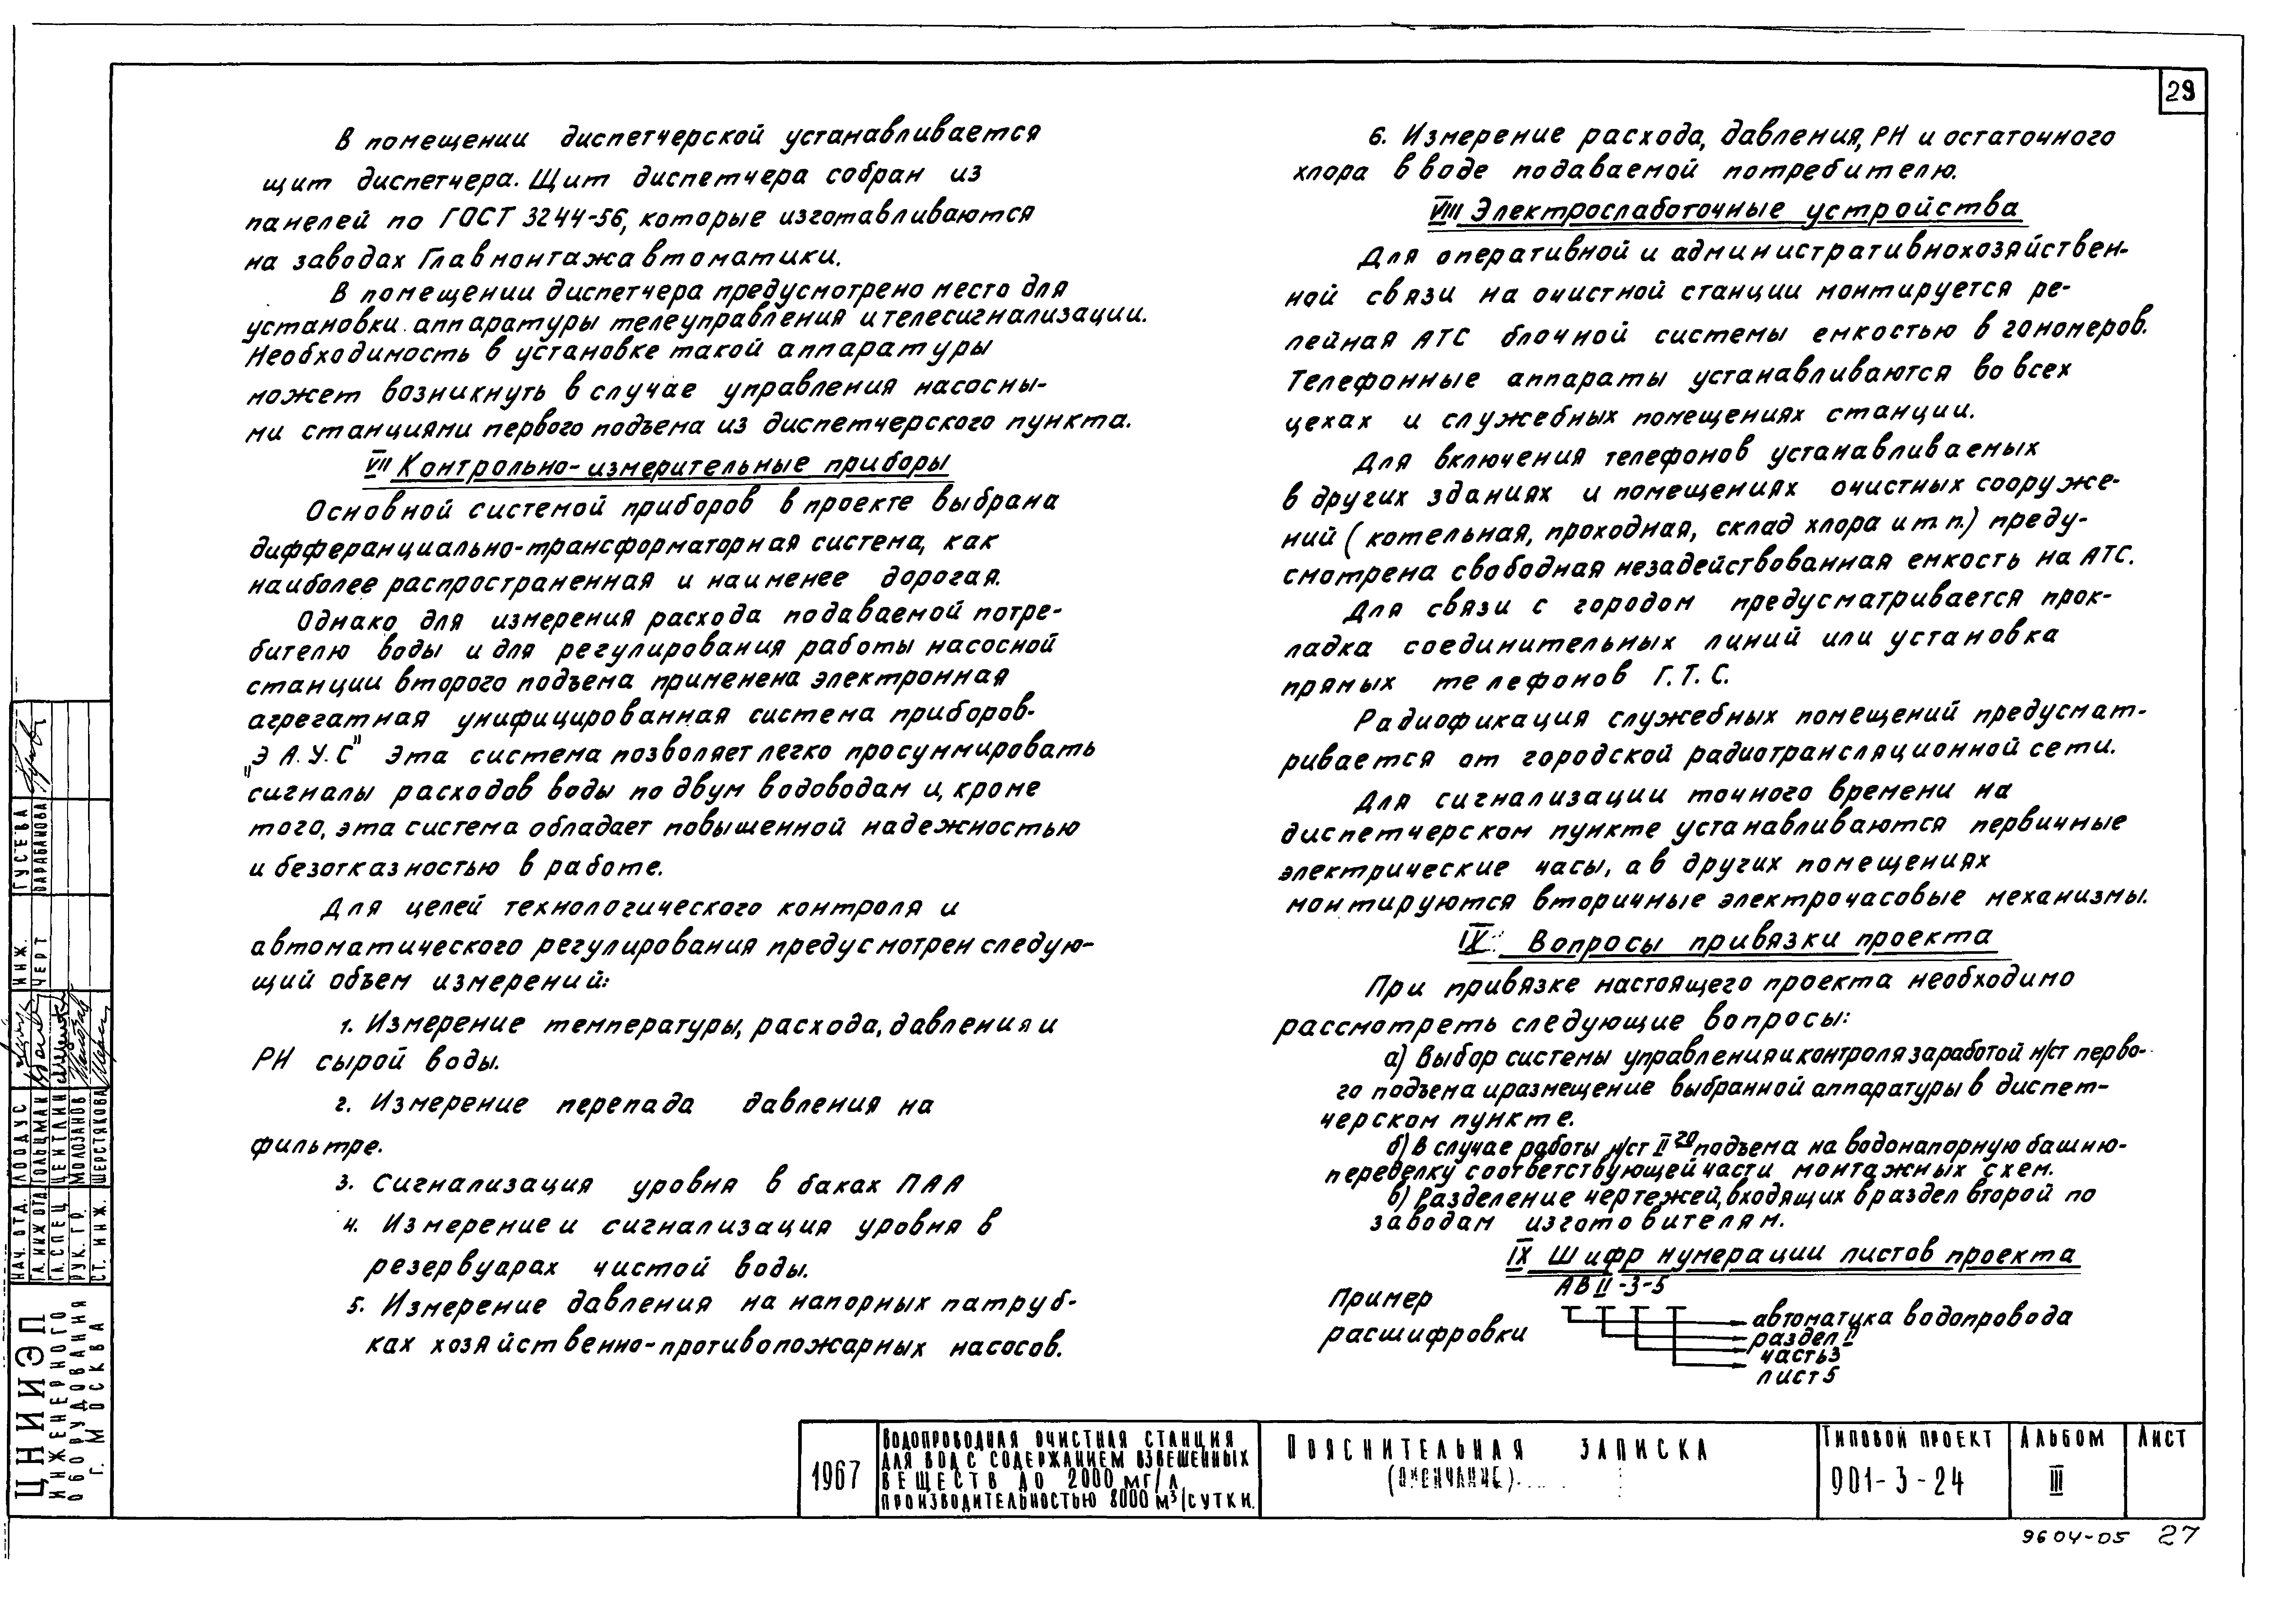 29
В помещении диспетчерской устанавливается
щит диспетчера. Щит диспетчера собран из
панелей по ГОСТ 3244-56, которые изготавливаются
на заводах Главмонтажавтоматики.
В помещении диспетчера предусмотрено место для
установки аппаратуры телеуправления и телесигнализации.
Необходимость в установке такой аппаратуры
может возникнуть в случае управления насосны-
ми станциями первого подъема из диспетчерского пункта.
VII Контрольно-измерительные приборы
Основной системой приборов в проекте выбрана
дифферанциально-трансформаторная система, как
наиболее распространенная и наименее дорогая.
Однако для измерения расхода подаваемой потре-
бителю воды и для регулирования работы насосной
станции второго подъема применена электронная
агрегатная унифицированная система приборов-
„Э А.У.С" Эта система позволяет легко просуммировать
сигналы расходов воды по двум водоводам и, кроме
того, эта система обладает повышенной надежностью
и безотказностью в работе.
Для целей технологического контроля и
автоматического регулирования предусмотрен следую-
щий объем измерений:
1. Измерение температуры, расхода, давления и
РН сырой воды.
2. Измерение перепада давления на
фильтре.
3. Сигнализация уровня в баках ПАА
4. Измерение и сигнализация уровня в
резервуарах чистой воды.
5. Измерение давления на напорных патруб-
ках хозяйственно-противопожарных насосов.
6. Измерение расхода, давления, РН и остаточного
хлора в воде подаваемой потребителю.
VIII Электрослаботочные устройства
Для оперативной и административнохозяйствен-
ной связи на очистной станции монтируется ре-
лейная АТС блочной системы емкостью в 20 номеров.
Телефонные аппараты устанавливаются во всех
цехах и служебных помещениях станции.
Для включения телефонов устанавливаемых
в других зданиях и помещениях очистных сооруже-
ний (котельная, проходная, склад хлора и т.п.) преду-
смотрена свободная незадействованная емкость на АТС.
Для связи с городом предусматривается прок-
ладка соединительных линий или установка
прямых телефонов Г.Т.С.
Радиофикация служебных помещений предусмат-
ривается от городской радиотрансляционной сети.
Для сигнализации точного времени на
диспетчерском пункте устанавливаются первичные
электрические часы, а в других помещениях
монтируются вторичные электрочасовые механизмы.
IX. Вопросы привязки проекта
При привязке настоящего проекта необходимо
рассмотреть следующие вопросы:
а) Выбор системы управления и контроля за работой н/ст перво-
го подъема и размещение выбранной аппаратуры в диспет-
черском пункте.
б) В случае работы н/ст II го подъема на водонапорную башню-
переделку соответствующей части монтажных схем.
в) Разделение чертежей, входящих в раздел второй по
заводам изготовителям.
IX Шифр нумерации листов проекта
Пример
расшифровки
АВ II-3-5
автоматика водопровода
раздел II
часть 3
лист 5
1967
Водопроводная очистная станция
для вод с содержанием взвешенных
веществ до 2000 мг/л
производительностью 8000 м³/сутки.
Пояснительная записка
(окончание)
Типовой проект
901-3-24
Альбом
III
Лист
9604-05 27
ЦНИИЭП
инженерного
оборудования
г. Москва
Нач. отд. Лордус
Гл. инж. отд. Гольцман
Гл. спец. Цейтлин
Рук. гр. Молозанов
Ст. инж. Шерстякова
Инж. Гусева
Черт Барабанова